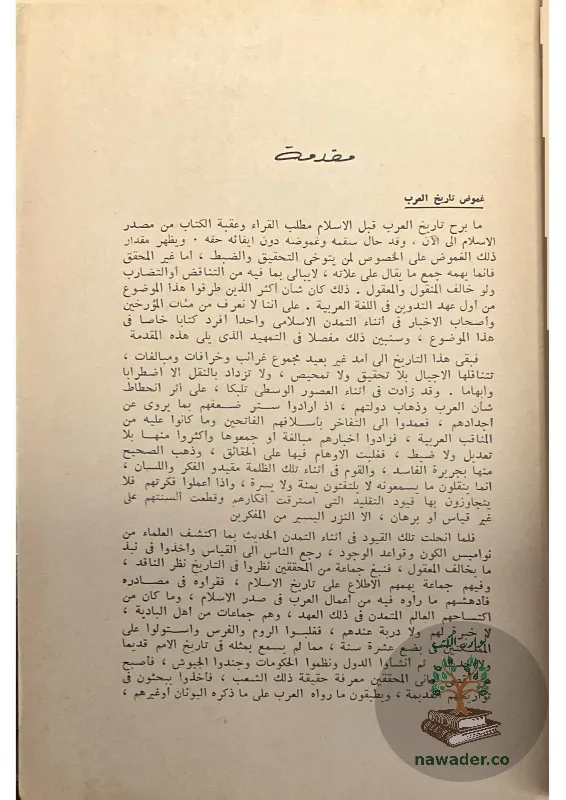 مقدمة
غموض تاريخ العرب
ما برح تاريخ العرب قبل الاسلام مطلب القراء وعقبة الكتاب من مصدر
الاسلام الى الآن ، وقد حال سقمه وغموضه دون ايفائه حقه . ويظهر مقدار
ذلك الغموض على الخصوص لمن يتوخى التحقيق والضبط ، اما غير المحقق
فانما يهمه جمع ما يقال على علاته ، لايبالى بما فيه من التناقض أوالتضارب
ولو خالف المنقول والمعقول . ذلك كان شأن أكثر الذين طرقوا هذا الموضوع
من أول عهد التدوين فى اللغة العربية . على اننا لا نعرف من مئات المؤرخين
وأصحاب الاخبار فى أثناء التمدن الاسلامى واحدا أفرد كتابا خاصا فى
هذا الموضوع ، وسنبين ذلك مفصلا فى التمهيد الذى يلى هذه المقدمة
فبقى هذا التاريخ الى أمد غير بعيد مجموع غرائب وخرافات ومبالغات ،
تتناقلها الاجيال بلا تحقيق ولا تمحيص ، ولا تزداد بالنقل الا اضطرابا
وابهاما . وقد زادت فى أثناء العصور الوسطى تلبكا ، على أثر انحطاط
شأن العرب وذهاب دولتهم ، اذ ارادوا ستر ضعفهم بما يروى عن
اجدادهم ، فعمدوا الى التفاخر بأسلافهم الفاتحين وما كانوا عليه من
المناقب العربية ، فزادوا اخبارهم مبالغة أو جمعوها واكثروا منها بلا
تعديل ولا ضبط ، فغلبت الاوهام فيها على الحقائق ، وذهب الصحيح
منها بجريرة الفاسد ، والقوم فى أثناء تلك الظلمة مقيدو الفكر واللسان ،
انما ينقلون ما يسمعونه لا يلتفتون يمنة ولا يسرة ، واذا اعملوا فكرتهم فلا
يتجاوزون بها قيود التقليد التى استرقت أفكارهم وقطعت ألسنتهم على
غير قياس أو برهان ، الا النزر اليسير من المفكرين
فلما انحلت تلك القيود فى أثناء التمدن الحديث بما اكتشف العلماء من
نواميس الكون وقواعد الوجود ، رجع الناس الى القياس وأخذوا فى نبذ
ما يخالف المعقول ، فنبغ جماعة من المحققين نظروا فى التاريخ نظر الناقد ،
وفيهم جماعة يهمهم الاطلاع على تاريخ الاسلام ، فقراوه فى مصادره
فأدهشهم ما رأوه فيه من أعمال العرب فى صدر الاسلام ، وما كان من
اكتساحهم العالم المتمدن فى ذلك العهد ، وهم جماعات من اهل البادية ،
لا خبرة لهم ولا دربة عندهم ، فغلبوا الروم والفرس واستولوا على
فى بضع عشرة سنة ، مما لم يسمع بمثله فى تاريخ الامم قديما
ثم انشأوا الدول ونظموا الحكومات وجندوا الجيوش ، فأصبح
المحققين معرفة حقيقة ذلك الشعب ، فأخذوا يبحثون فى
القديمة ، ويطبقون ما رواه العرب على ما ذكره اليونان أوغيرهم ،
نوادر الكتب
nawader.co